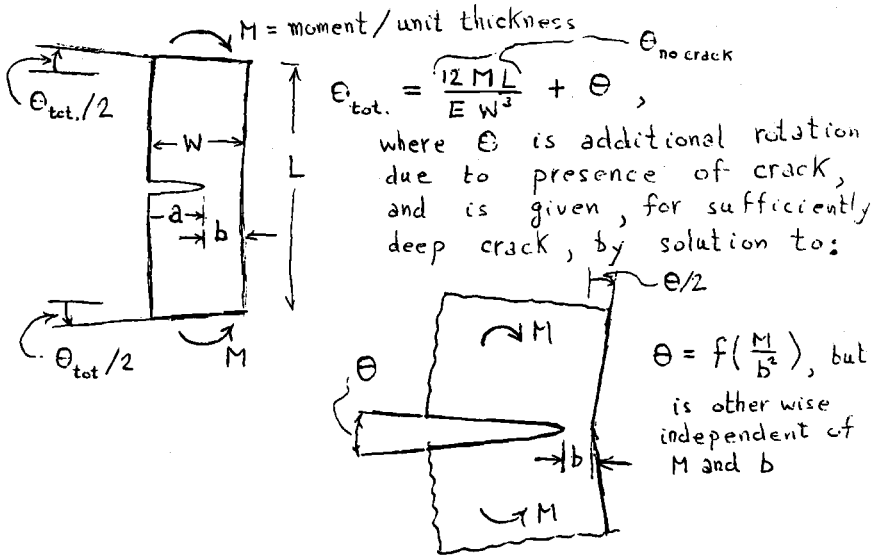 M = moment / unit thickness
θ no crack
θtot./2
θtot. = 12 M L / E W³ + θ ,
where θ is additional rotation
due to presence of crack,
and is given, for sufficiently
deep crack, by solution to:
W
L
a
b
θ/2
M
θtot/2
M
θ = f(M/b²), but
is other wise
independent of
M and b
θ
b
M